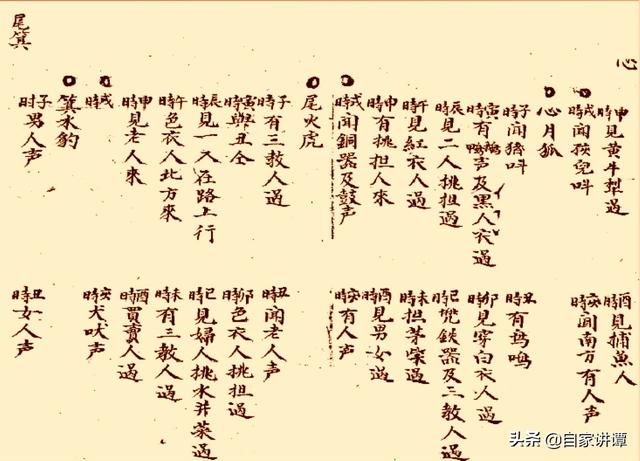 心
申時見黄牛犁過
酉時見捕魚人
戌時闻孩兒呌
亥時闻南方有人声
心月狐
子時闻猪呌
丑時有鸟鳴
寅時有鵝鴨声及黑人衣過
卯時見穿白衣人過
辰時見二人挑担過
巳時兜鉄器及三教人過
午時見紅衣人過
未時担茅柴過
申時有挑担人來
酉時見男女過
戌時闻銅器及鼓声
亥時有人声
尾火虎
子時有三教人過
丑時闻老人声
寅時與丑仝
卯時色衣人挑担過
辰時見一人在路上行
巳時見婦人挑水并菜過
午時色衣人北方來
未時有三教人過
申時見老人來
酉時買賣人過
戌時
亥時犬吠声
箕水豹
子时男人声
丑時女人声
尾箕
头条 @自家讲谭